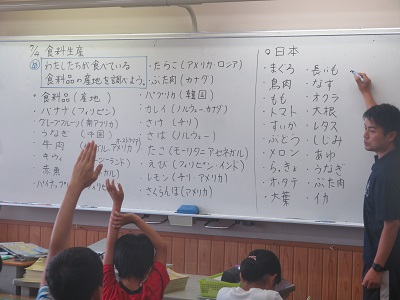 7/4 食料生産
め わたしたちが食べている
食料品の産地を調べよう。
・食料品(産地)
・バナナ(フィリピン)
・グレープフルーツ(南アフリカ)
・うなぎ (中国)
・牛肉
・キウイ
・赤魚
・たらこ(アメリカ・ロシア)
・ぶた肉(カナダ)
・パプリカ(韓国)
・カレイ(ノルウェー・カナダ)
・さけ(チリ)
・さば(ノルウェー)
・たこ(モーリタニア・セネガル)
・えび(フィリピン・インド)
・レモン(チリ・アメリカ)
・さくらんぼ(アメリカ)
○日本
・まぐろ
・鳥肉
・もも
・トマト
・すいか
・ぶどう
・メロン
・らっきょ
・ホタテ
・大葉
・長いも
・なす
・オクラ
・大根
・レタス
・しじみ
・あゆ
・うなぎ
・ぶた肉
・イカ